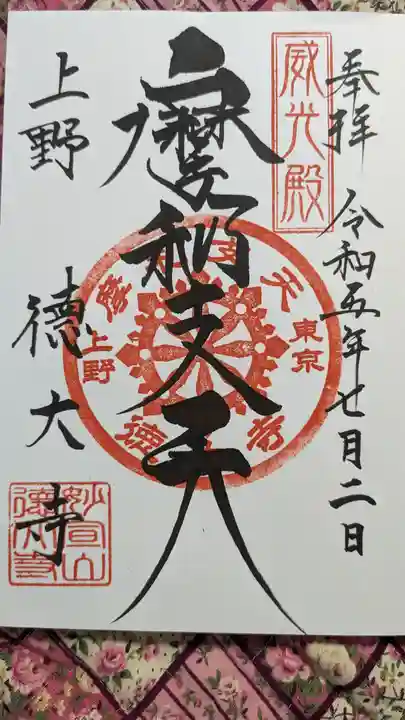 奉拝 令和五年七月二日
威光殿
摩利支天
摩利支天
東京
上野
徳大寺
上野 徳大寺
妙宣山
徳大寺